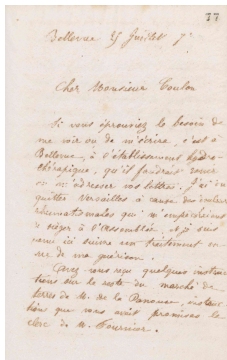 77
Bellevue 25 Juillet 7
Cher Monsieur Toulon
Si vous éprouviez le besoin de
me voir ou de m'écrire, c'est à
Bellevue, à l'établissement hydro-
thérapique, qu'il faudrait venir
ou m'adresser vos lettres. J'ai dû
quitter Versailles à cause des douleurs
rhumatismales qui m'empêchaient
de siéger à l'Assemblée et je suis
venu ici suivre un traitement en
vue de ma guérison.
Avez vous reçu quelques instruc
tions sur le reste du marché de
terres de M. de la Panouse, instruc
tions que vous avait promises le
clerc de M. Fournier.